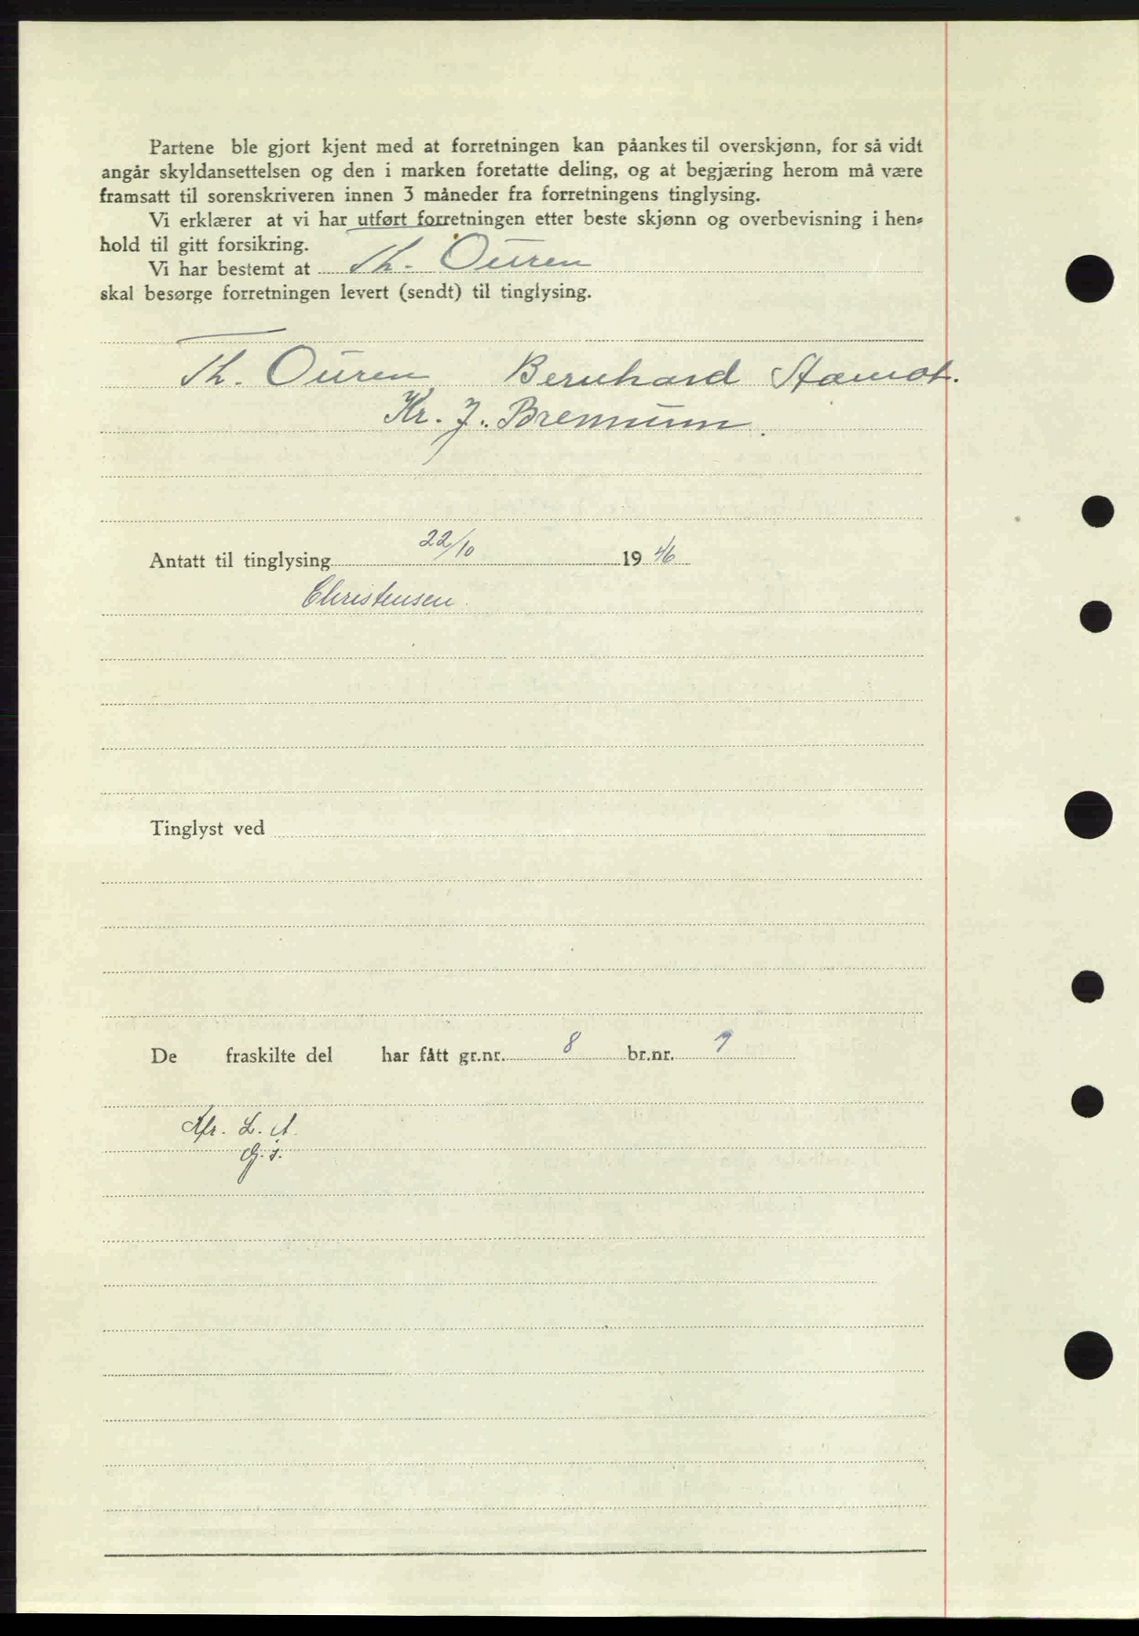 Partene ble gjort kjent med at forretningen kan påankes til overskjønn, for så vidt
angår skyldansettelsen og den i marken foretatte deling, og at begjæring herom må være
framsatt til sorenskriveren innen 3 måneder fra forretningens tinglysing.
Vi erklærer at vi har utført forretningen etter beste skjønn og overbevisning i hen-
hold til gitt forsikring.
Vi har bestemt at Th. Ouren
skal besørge forretningen levert (sendt) til tinglysing.
Th. Ouren Bernhard
Kr. J. Brennum.
Antatt til tinglysing 22/10 1946
Christensen.
Tinglyst ved
De fraskilte del har fått gr.nr. 8 br.nr. 7
Afr. L. A.
G. J.